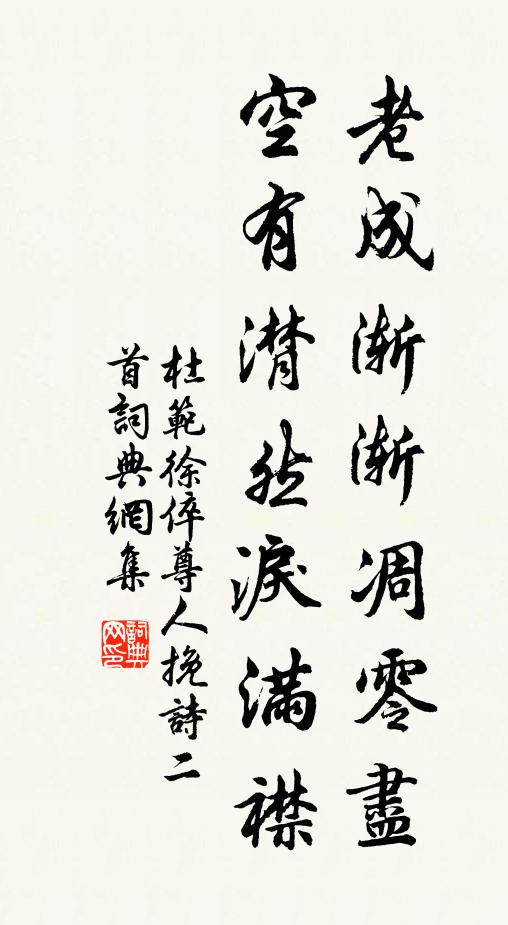 老成渐渐凋零盡
空有潸然淚滿襟
杜範徐倅尊人挽詩二
首詞典網集
詞典网印